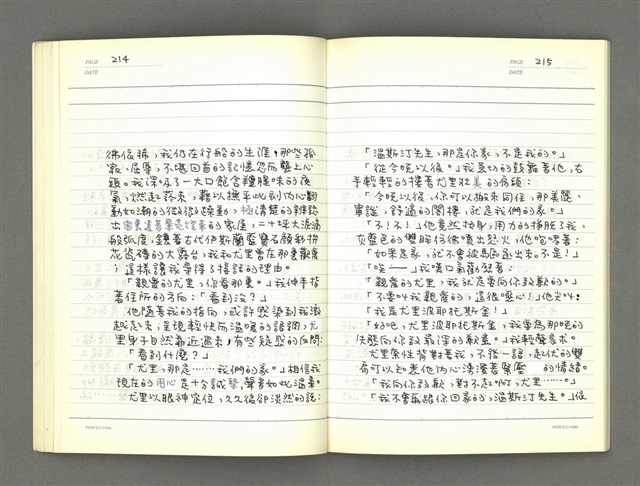 PAGE 214
DATE
彿依稀,我仍在行船的生涯。那些孤
寂、屈辱、不堪回首的記憶忽而襲上心
頭。我深吸了一大口飽含種腥味的夜
氣,燃起菸來,藉以撫平此刻內心翻
動如潮的微微起動,極清楚的辨認
的家庭,二十坪大波滿
般弧度,鑲著古代伊斯蘭藍寶石顏彩拼
花瓷磚的大露台,我和尤里曾在那裏觀
,這樣讓我尋得了接話的理由。
「親愛的尤里,你看那裏。」我伸手指
著住所的方向:「看到沒?」
他隨著我的指向,或許感染到我激
越起來,呈現輕快而溫暖的語調,尤
里身子自然靠近過來,有些疑惑的反問:
「看到什麼?」
「尤里,那是……我們的家。」相信我
現在的用心是十分誠摯,聲音如此溫柔。
尤里以眼神定位,久久後卻淡然的說:
PERFECTION
PAGE 215
DATE
「溫斯汀先生,那是你家,不是我的。」
「從今晚以後。」我急切的鼓舞著他,右
手輕輕的摟著尤里壯美的肩頭:
「今晚以後,你可以搬來同住,那美麗、
寧謐、舒適的閣樓,就是我們的家。」
「不!不!」他竟然抽身,用力的掙脫了我,
灰藍色的雙眸彷彿噴出怒火,他咆哮著:
「如果是家,就不會被馬區逐出來,不是!」
「唉——」我嘆口氣,安慰著:
「親愛的尤里,我就是要向你致歉的。」
「不要叫我親愛的,這很噁心!」他尖叫:
「我是尤里波耶托斯金!」
「好吧,尤里波耶托斯金,我要為那晚的
失態向你致最深的歉意。」我輕聲哀求。
尤里索性背對著我,不發一語,起伏的雙
肩可以知悉他內心洶湧著緊繃 的情緒。
「我向你致歉,對不起啊,尤里……。」
「我不會再跟你回家的,溫斯汀先生。」低
PERFECTION